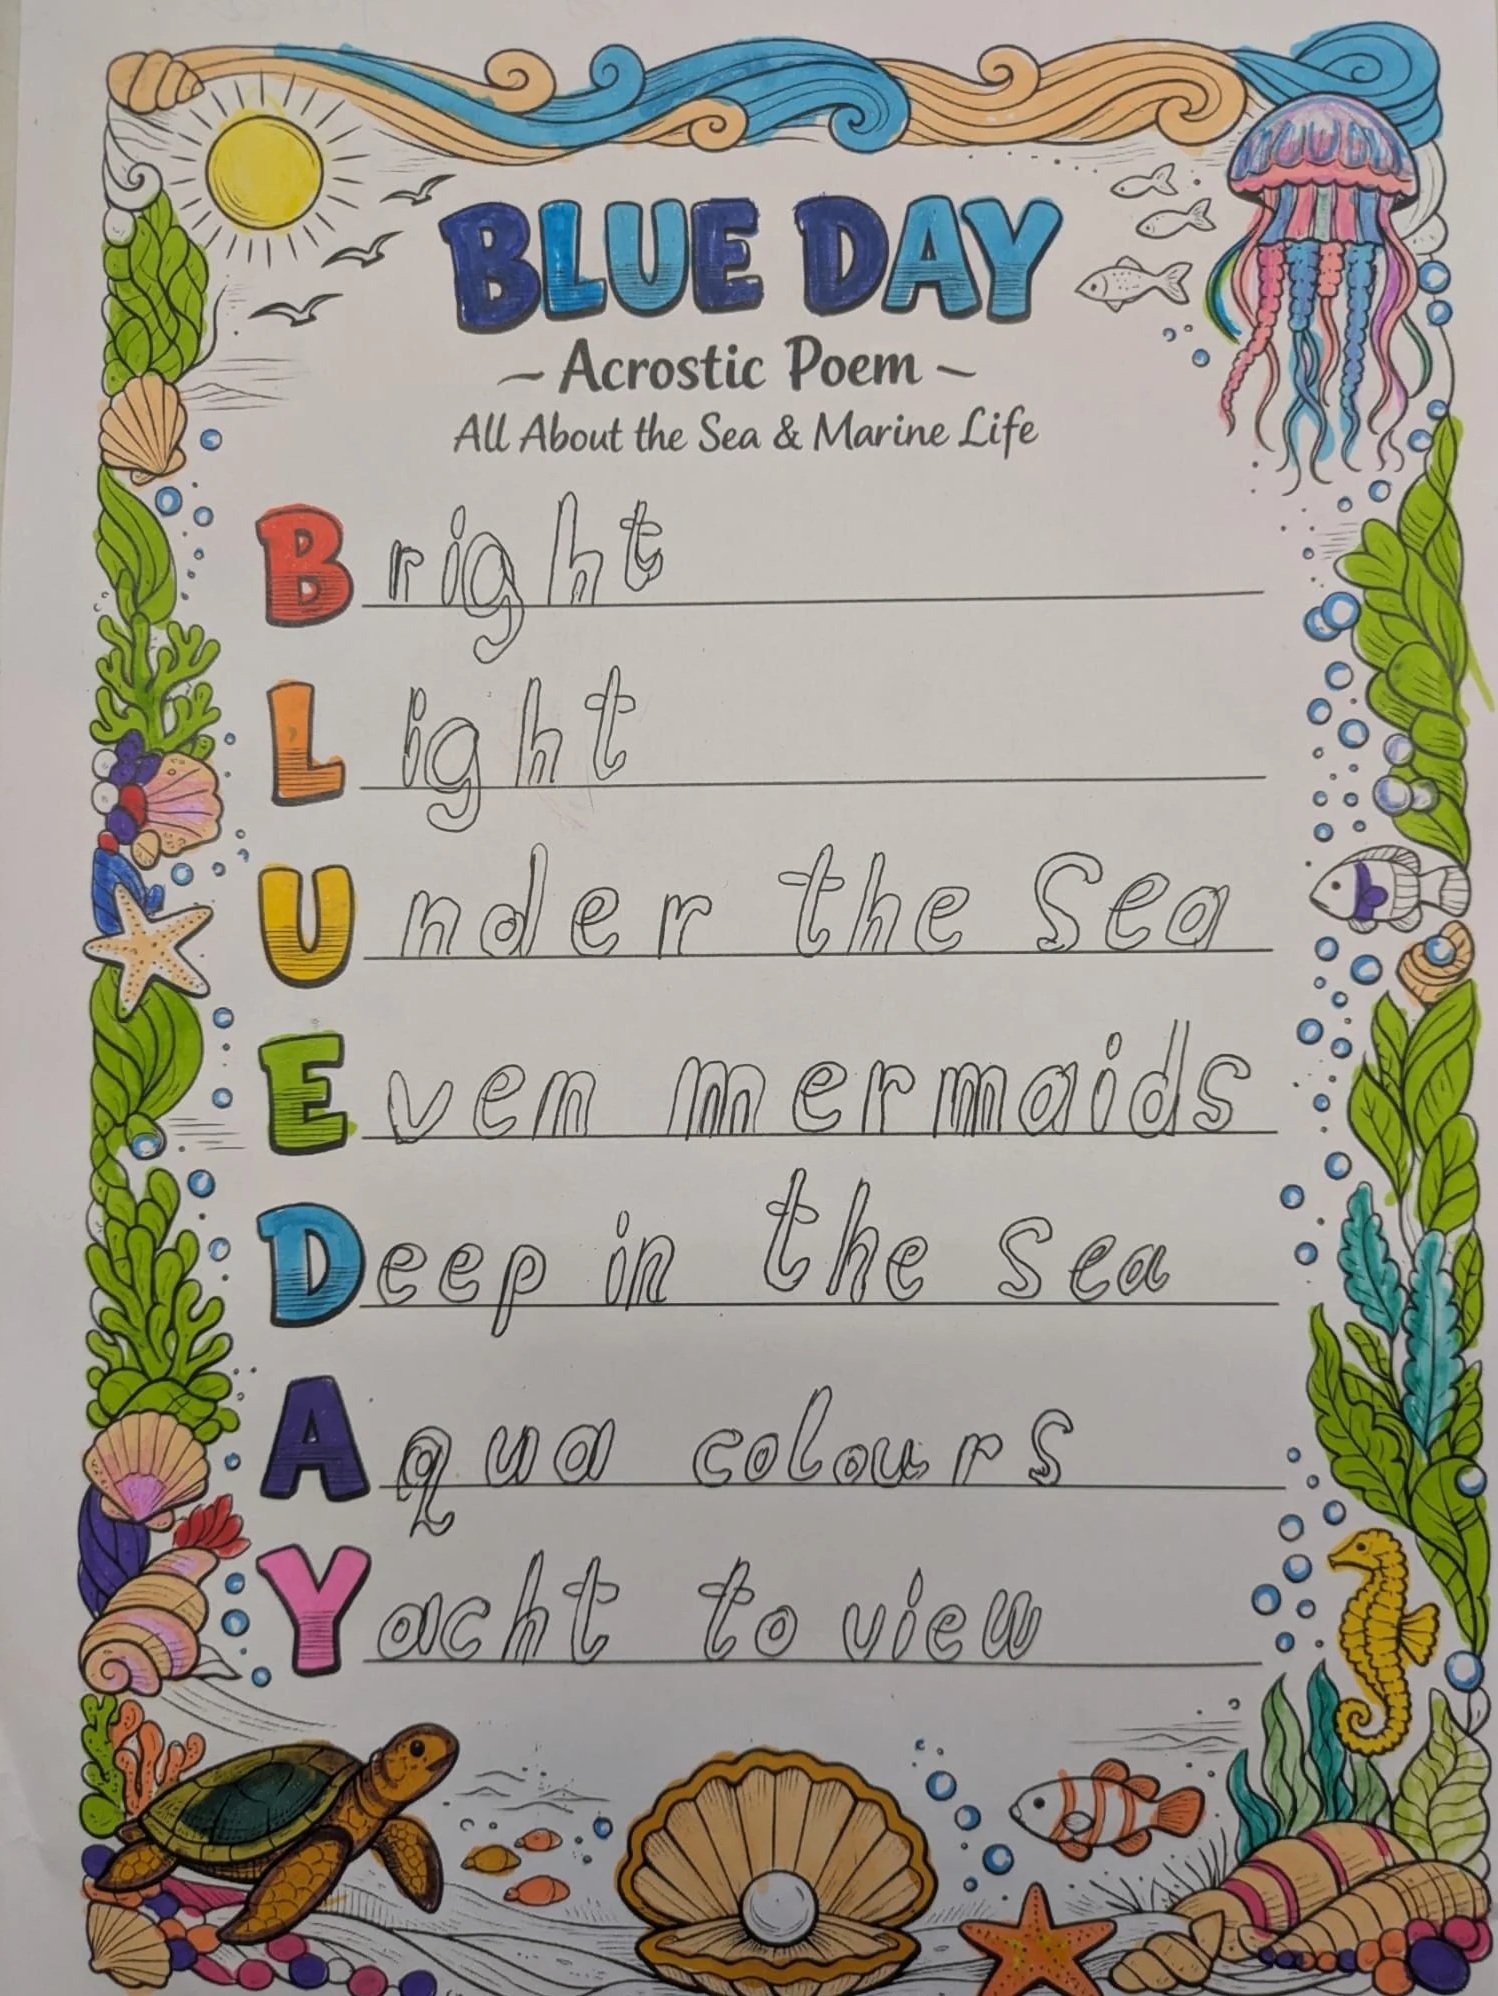 BLUE DAY
~ Acrostic Poem ~
All About the Sea & Marine Life
Bright
Light
Under the Sea
Even mermaids
Deep in the sea
Aqua colours
Yacht to view